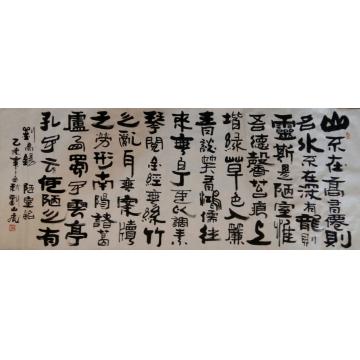 山不在高有僊則
名水不在深有龍
靈斯是陋室惟
吾德馨苔痕上
堦綠草色入簾
青談笑有鴻儒往
來無白丁可以調素
琴閱金經無絲竹
之亂耳無案牘
之勞形南陽諸葛
廬西蜀子雲亭
孔子云何陋之有
劉禹錫 陋室銘
乙未年 劉